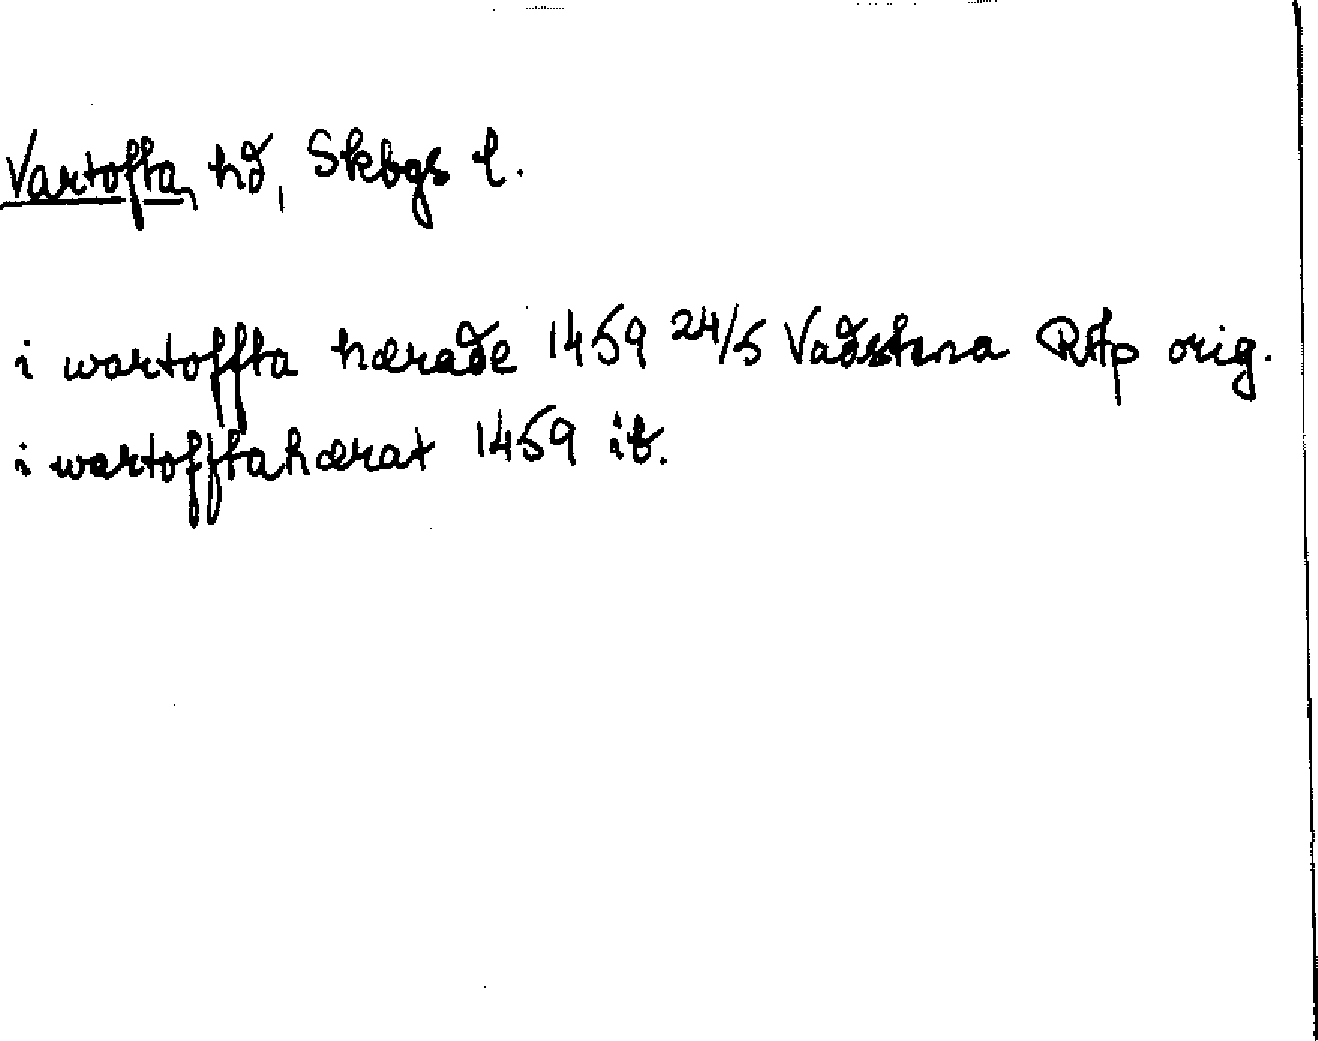 Vartofta hd, Skbgs l.
i wartoffta hærade 1459 24/5 Vadstena RAp orig.
i wartofftahærat 1459 ib.